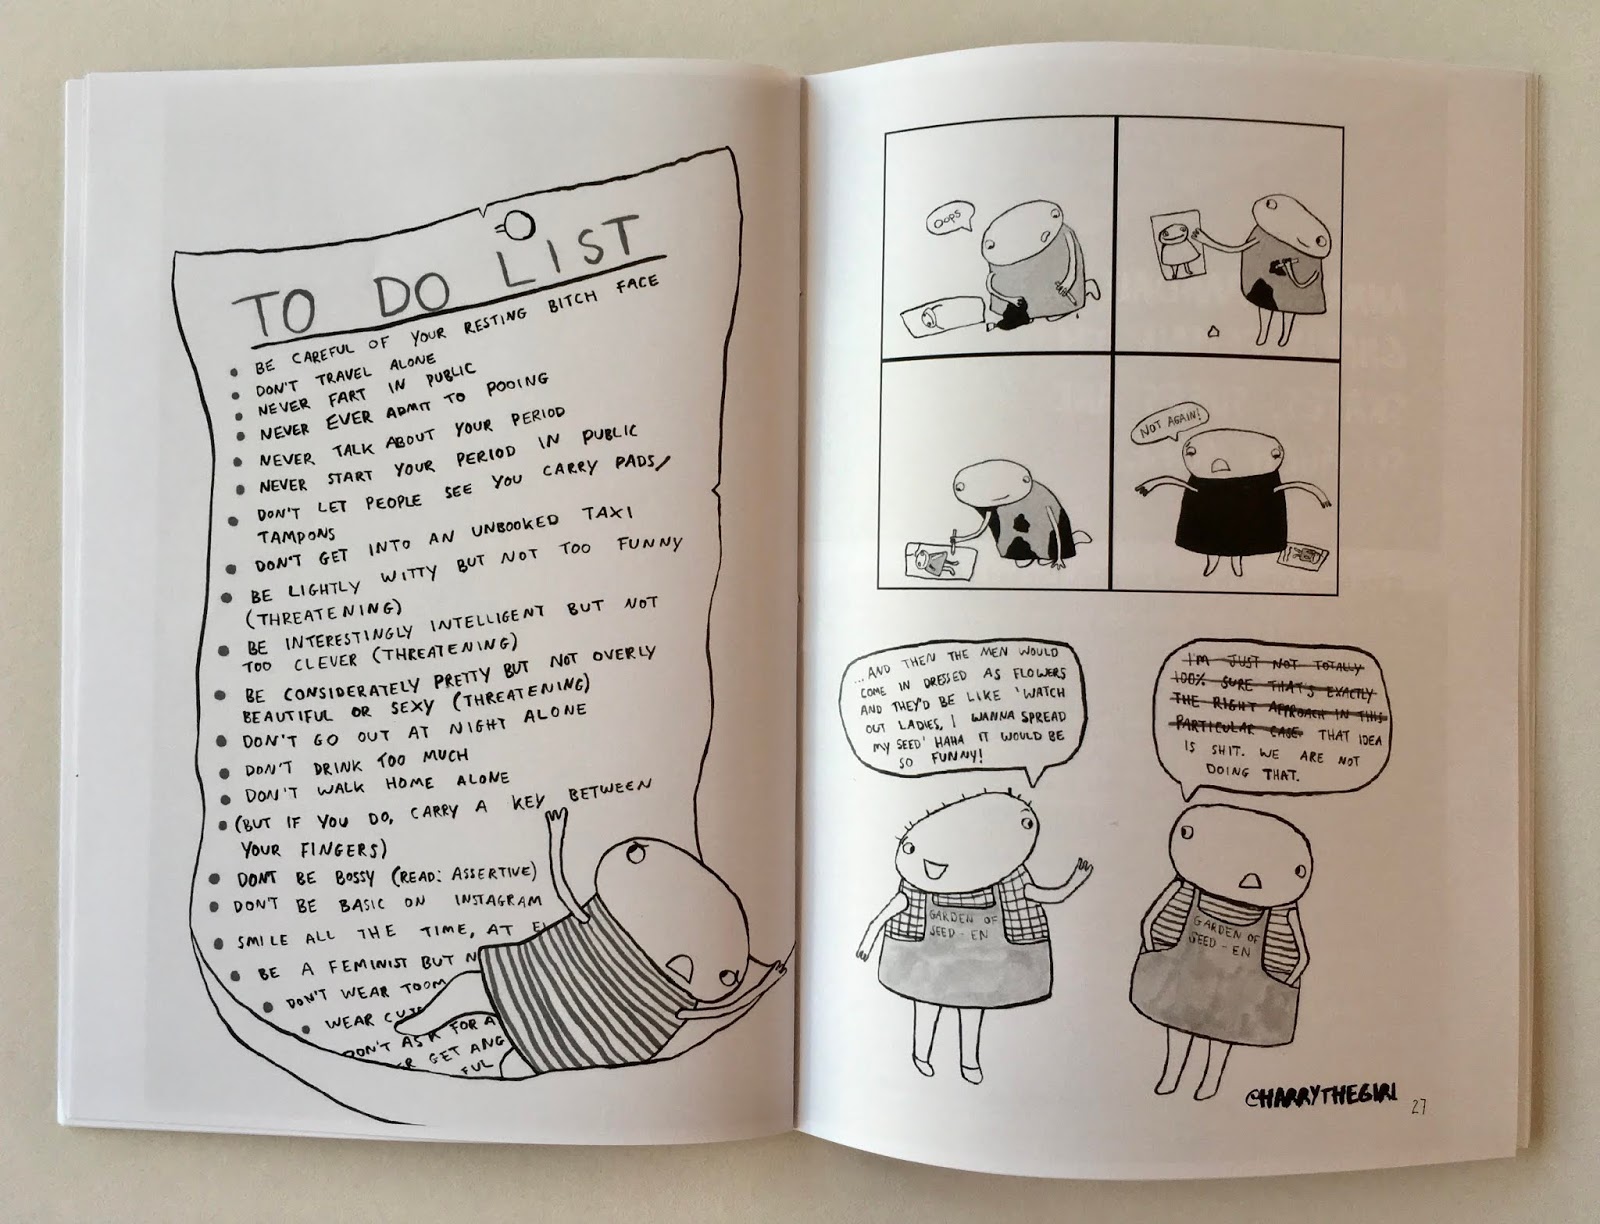 TO DO LIST
BE CAREFUL OF YOUR RESTING BITCH FACE
DON'T TRAVEL ALONE
NEVER FART IN PUBLIC
NEVER EVER ADMIT TO POOING
NEVER TALK ABOUT YOUR PERIOD
NEVER START YOUR PERIOD IN PUBLIC
DON'T LET PEOPLE SEE YOU CARRY PADS/
TAMPONS
DON'T GET INTO AN UNBOOKED TAXI
BE LIGHTLY WITTY BUT NOT TOO FUNNY
(THREATENING)
BE INTERESTINGLY INTELLIGENT BUT NOT
TOO CLEVER (THREATENING)
BE CONSIDERATELY PRETTY BUT NOT OVERLY
BEAUTIFUL OR SEXY (THREATENING)
DON'T GO OUT AT NIGHT ALONE
DON'T DRINK TOO MUCH
DON'T WALK HOME ALONE
(BUT IF YOU DO, CARRY A KEY BETWEEN
YOUR FINGERS)
DONT BE BOSSY (READ: ASSERTIVE)
DON'T BE BASIC ON INSTAGRAM
SMILE ALL THE TIME, AT
BE A FEMINIST BUT
DON'T WEAR TOO
WEAR
DON'T ASK FOR A
GET
OOPS
NOT AGAIN!
...AND THEN THE MEN WOULD
COME IN DRESSED AS FLOWERS
AND THEY'D BE LIKE 'WATCH
OUT LADIES, I WANNA SPREAD
MY SEED' HAHA IT WOULD BE
SO FUNNY!
I'M JUST NOT TOTALLY
100% SURE THAT'S EXACTLY
THE RIGHT APPROACH IN THIS
PARTICULAR CASE. THAT IDEA
IS SHIT. WE ARE NOT
DOING THAT.
GARDEN OF
SEED-EN
GARDEN OF
SEED-EN
@HARRYTHEGIRL
27